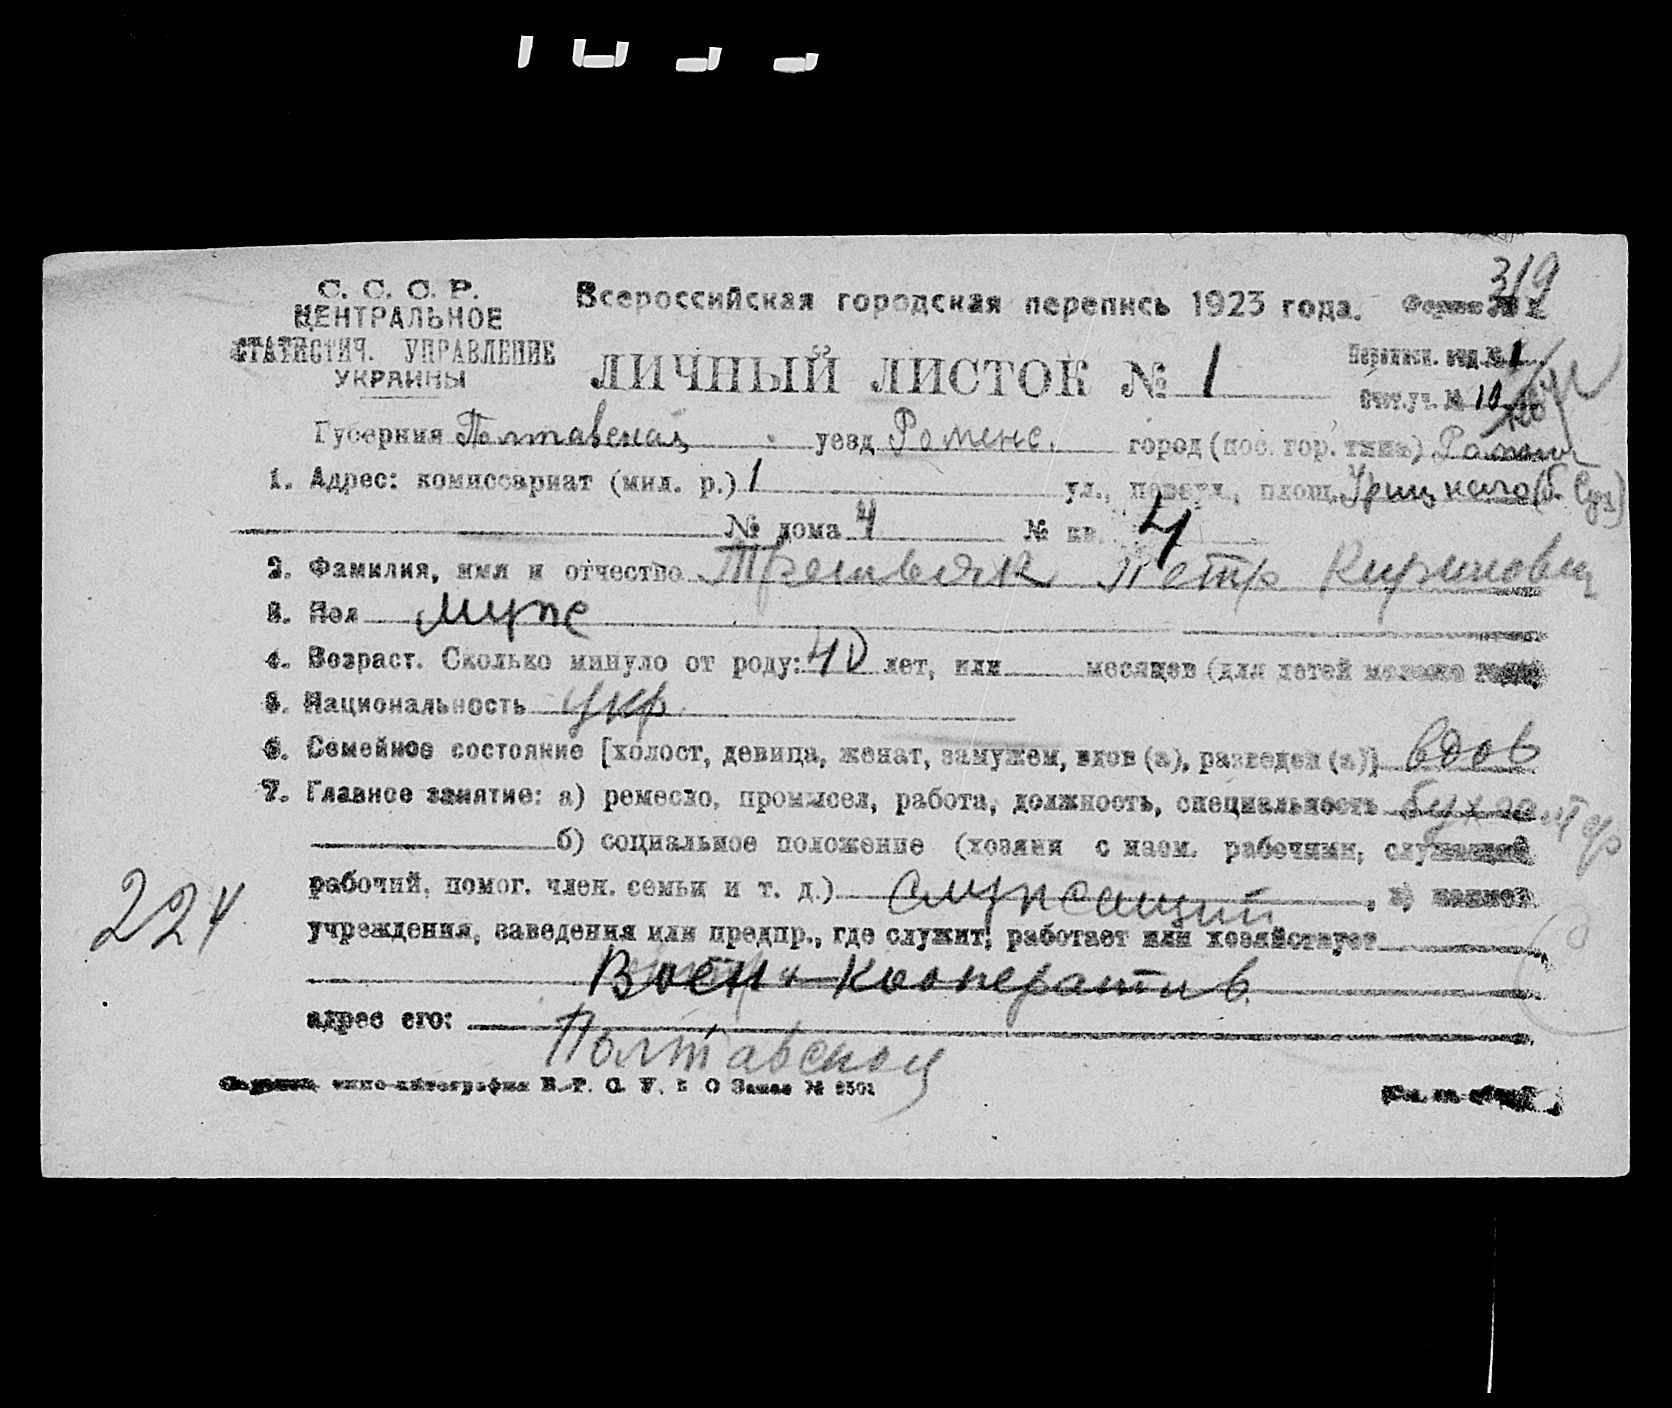 319
С. С. С. Р.
ЦЕНТРАЛЬНОЕ
СТАТИСТИЧ. УПРАВЛЕНИЕ
УКРАИНЫ
Всероссийская городская перепись 1923 года. Форма № 1
ЛИЧНЫЙ ЛИСТОК № 1
Переписн. отд. № 1
Счет. уч. № 10
Губерния Полтавская уезд Роменс. город (пос. гор. типа) Ромны
1. Адрес: комиссариат (мил. р.) 1 ул., переул., площ. Урицкаго (б.
№ дома 4 № кв. 4
2. Фамилия, имя и отчество Третьяк Петр
3. Пол муж
4. Возраст. Сколько минуло от роду: 40 лет, или месяцев (для детей моложе года)
5. Национальность укр.
6. Семейное состояние [холост, девица, женат, замужем, вдов (а), разведен (а)] вдов
7. Главное занятие: а) ремесло, промысел, работа, должность, специальность бухгалтер
б) социальное положение (хозяин с наем. рабочими, служащий
рабочий, помог. член. семьи и т. д.) служащий, в) наимен.
учреждения, заведения или предпр., где служит, работает или хозяйствует
Воен. кооператив
адрес его:
Полтавской
типо-литография В. Т. С. У. Заказ №
224